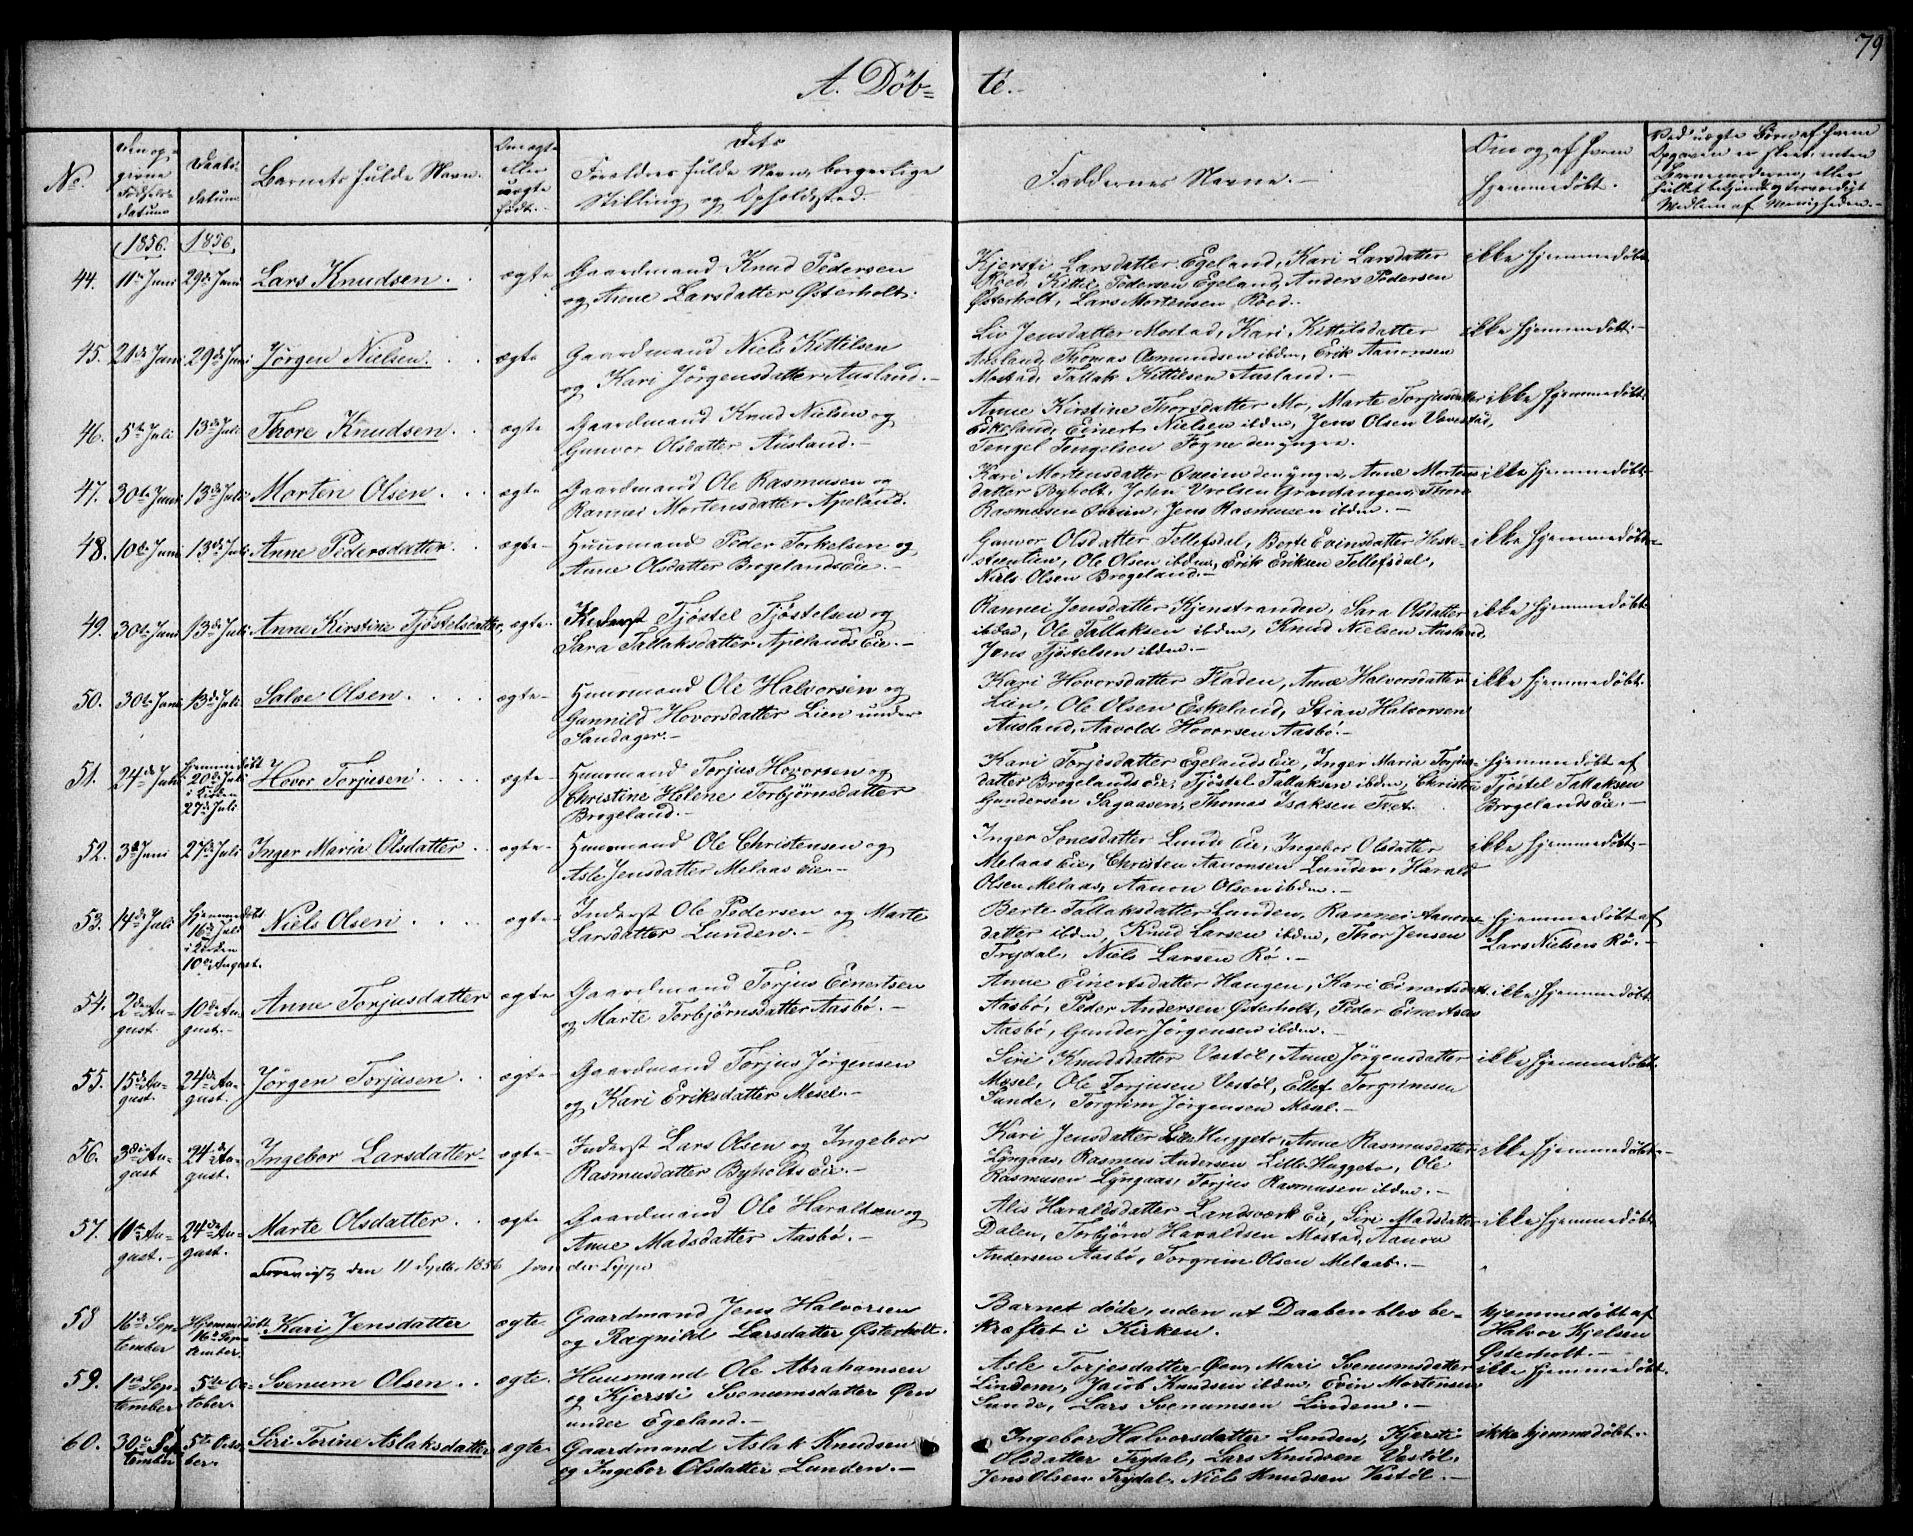 79
A. Döb= te.
No.
Den op=
givne
Födsels=
datum
Daabs=
datum
Barnets fulde Navn.
Om ægte
eller
uægte
født.
Dets
Forældres fulde Navn, borgerlige
Stilling og Opholdssted.
Faddernes Navne.
Om og af hvem
hjemmedöbt.
1856. 1856.
44. 11te Juni 29de Juni Lars Knudsen. ægte Gaardmand Knud Pedersen
og Anne Larsdatter Østerholt.
Kjersti Larsdatter Egeland, Kari Larsdatter
Röed, Kittil Pedersen Egeland, Anders Pedersen
Østerholt, Lars Mortensen Röed.
ikke hjemmedöbt
45. 21de Juni 29de Juni Jörgen Nielsen. ægte Gaardmand Niels Kittilsen
og Kari Jörgensdatter Ausland.
Liv Jensdatter Mostad, Kari Kittilsdatter
Ausland, Thomas Osmundsen ibdm, Erik Aanonsen
Mostad, Tallak Kittilsen Ausland.
ikke hjemmedöbt.
46. 5te Juli 13de Juli Thore Knudsen. ægte Gaardmand Knud Nielsen og
Gunvor Olsdatter Ausland.
Anne Kirstine Thorsdatter Mo, Marte Torjusdatter
Eskeland, Einert Nielsen ibdm, Jens Olsen
Tengel Tengelsen Fogne den yngre.
ikke hjemmedöbt.
47. 30te Juni 13de Juli Morten Olsen. ægte Gaardmand Ole Rasmussen og
Rannei Mortensdatter Apeland.
Kari Mortensdatter den yngre, Anne Mortens
datter Byholt, John
Rasmusen Jens Rasmusen ibdm.
ikke hjemmedöbt
48. 10de Juni 13de Juli Anne Pedersdatter. ægte Huusmand Peder Terkelsen og
Anne Olsdatter Brogelands Eie.
Gunvor Olsdatter Tellefsdal, Berte Evinsdatter Heste=
steenlien, Ole Olsen ibdm, Erik Eriksen Tellefsdal,
Niels Olsen Brogeland.
ikke hjemmedöbt
49. 30te Juni 13de Juli Anne Kirstine Tjöstelsdatter, ægte Inderst Tjöstel Tjöstelsen og
Sara Tallaksdatter Apelands Eie.
Rannei Jensdatter Kjenstranden, Sara Olsdatter
ibdm, Ole Tallaksen ibdm, Knud Nielsen Ausland,
Jens Tjöstelsen ibdm.
ikke hjemmedöbt
50. 30te Juni 13de Juli Salve Olsen. ægte Huusmand Ole Halvorsen og
Gunnild Hovorsdatter Lien under
Sandager.
Kari Hovorsdatter Fladen, Anne Halvorsdatter
Lien, Ole Olsen Eskeland, Stian Halvorsen
Ausland, Aavold Hovorsen Aasbö.
ikke hjemmedöbt
51. 24de Juni Hjemmedöbt
20de Juli
i Kirken
27de Juli Hovor Torjusen ægte Huusmand Torjus Hovorsen og
Christine Helene Torbjörnsdatter
Brogeland.
Kari Torjesdatter Egelands Eie, Inger Maria Torjus=
datter Brogelands Eie, Tjöstel Tallaksen ibdm, Christen
Gundersen Sagaasen, Thomas Isaksen Tvet.
hjemmedöbt af
Tjöstel Tallaksen
Brogelands Eie.
52. 3die Juni 27de Juli Inger Maria Olsdatter ægte Huusmand Ole Christensen og
Asle Jensdatter Melaas Eie.
Inger Lunde Eie, Ingebor Olsdatter
Melaas Eie, Christen Aanonsen Lunden, Harald
Olsen Melaas, Aanon Olsen ibdm.
ikke hjemmedöbt
53. 14de Juli hjemmedöbt
16de Juli
i Kirken
10de August. Niels Olsen ægte Inderst Ole Pedersen og Marte
Larsdatter Lunden.
Berte Tallaksdatter Lunden, Rannei Aanons=
datter ibdm, Knud Larsen ibdm, Thor Jensen
Trydal, Niels Larsen Rö.
hjemmedöbt af
Lars Nielsen Rö.
54. 2den Au=
gust. 10de Au=
gust. Anne Torjusdatter ægte Gaardmand Torjus Einertsen
og Marte Torbjörnsdatter Aasbö.
Anne Einertsdatter Haugen, Kari Einertsdatt.
Aasbö, Peder Andersen Østerholt, Peder Einertsen
Aasbö, Gunder Jörgensen ibdm.
ikke hjemmedöbt
55. 15de Au=
gust. 24de Au=
gust. Jörgen Torjusen. ægte Gaardmand Torjus Jörgensen
og Kari Eriksdatter Mesel.
Siri Knudsdatter Vestöl, Anne Jörgensdatter
Mesel, Ole Torjusen Vestöl, Ellef Torgrimsen
Sunde, Torgrim Jörgensen Mesel.
ikke hjemmedöbt.
56. 3die Au=
gust 24de Au=
gust. Ingebor Larsdatter ægte Inderst Lars Olsen og Ingebor
Rasmusdatter Byholts Eie.
Kari Jensdatter Lille Huggeto, Anne Rasmusdatter
Lyngaas, Rasmus Andersen Lille Huggeto, Ole
Rasmusen Lyngaas, Torjus Rasmusen ibdm.
ikke hjemmedöbt
57. 10de Au=
gust. 24de Au=
gust. Marte Olsdatter. ægte Gaardmand Ole Haraldsen og
Anne Madsdatter Aasbö.
Alis Haraldsdatter Landsværk Eie, Siri Madsdatter
Dalen, Torbjörn Haraldsen Mostad, Aanon
Andersen Aasbö, Torgrim Olsen Melaas.
ikke hjemmedöbt
den 11 Septbr. 1856
58 16de Sep=
tember Hjemmedöbt
16de Sep=
tember. Kari Jensdatter ægte. Gaardmand Jens Halvorsen
og Ragnild Larsdatter Østerholt.
Barnet döde, uden at Daaben blev be=
kræftet i Kirken.
hjemmedöbt af
Halvor Kjelsen
Østerholt.
59. 1ste Sep=
tember 5te Oc=
tober. Svenum Olsen ægte. Huusmand Ole Abrahamsen
og Kjersti Svenumsdatter Øen
under Egeland.
Asle Torjesdatter Øen, Mari Svenumsdatter
Lindem, Jacob Knudsen ibdm, Evin Mortensen
Sunde, Lars Svenumsen Lindem.
ikke hjemmedöbt.
60. 30te Sep=
tember 5te Octo=
ber. Siri Torine Aslaksdatter ægte Gaardmand Aslak Knudsen
og Ingebor Olsdatter Lunden.
Ingebor Halvorsdatter Lunden, Kjersti
Olsdatter Trydal, Lars Knudsen Vestöl,
Jens Olsen Trydal, Niels Knudsen Vestöl.
ikke hjemmedöbt.